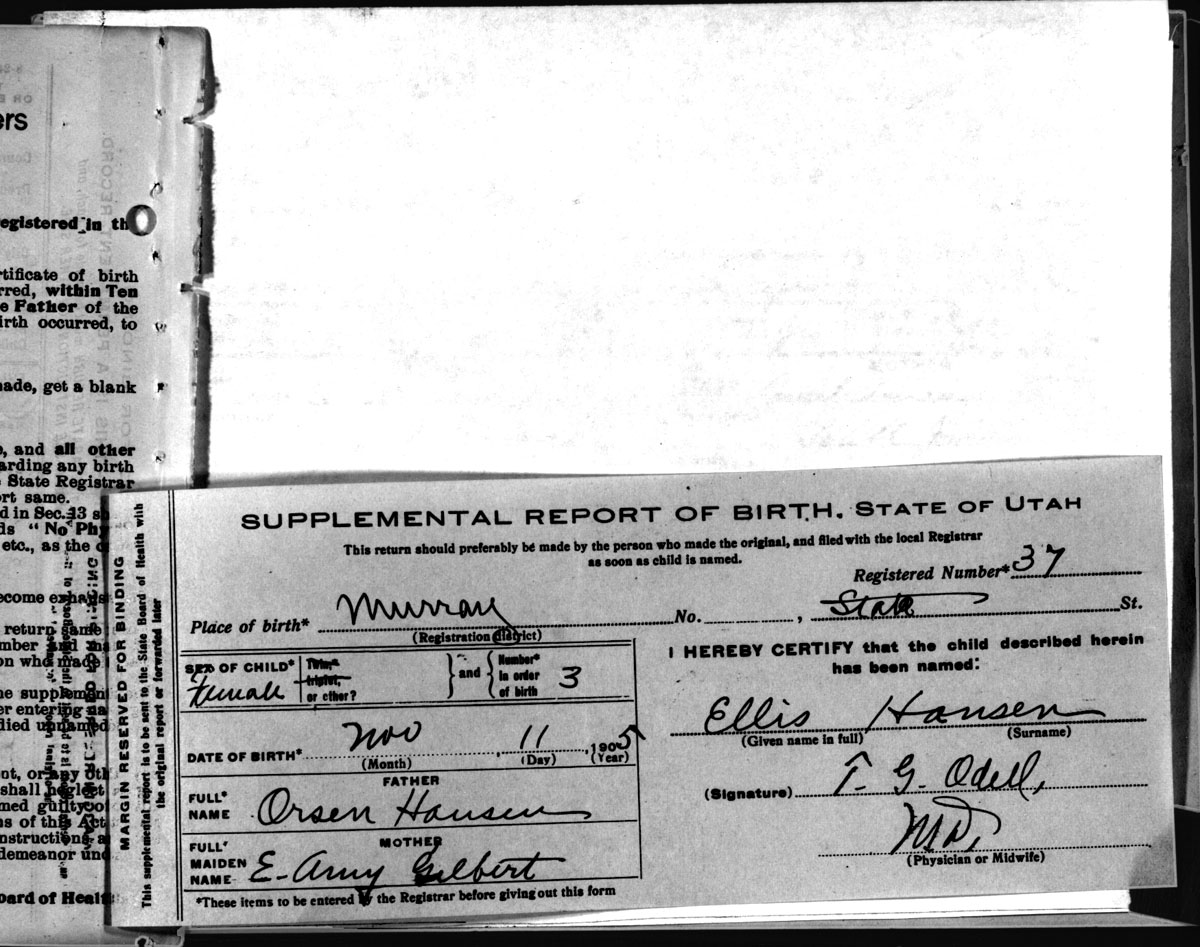 ers
egistered in th
rtificate of birth
rred, within Ten
e Father of the
irth occurred, to
nade, get a blank
, and all other
arding any birth
State Registrar
ort same.
d in Sec. 13 s
ds "No Phy
etc., as the
ecome exhaus
return
mber and
on who made
he supplemen
er entering na
died unnamed
ot, or any oth
shall neglect
med guilty of
ns of this Act
nstructions a
demeanor und
oard of Healt
MARGIN RESERVED FOR BINDING
This supplemental report is to be sent to the State Board of Health with
the original report or forwarded later
SUPPLEMENTAL REPORT OF BIRTH. STATE OF UTAH
This return should preferably be made by the person who made the original, and filed with the local Registrar
as soon as child is named.
Registered Number* 37
Place of birth* Murray No. , State St.
(Registration district)
SEX OF CHILD* Female Twin, triplet, or other? and Number* in order of birth 3
DATE OF BIRTH* Nov 11, 1905
(Month) (Day) (Year)
FATHER
FULL* NAME Orsen Hansen
MOTHER
FULL* MAIDEN NAME E. Amy Gilbert
*These items to be entered by the Registrar before giving out this form
I HEREBY CERTIFY that the child described herein
has been named:
Ellis Hansen
(Given name in full) (Surname)
(Signature) T. G. Odell,
M.D.
(Physician or Midwife)